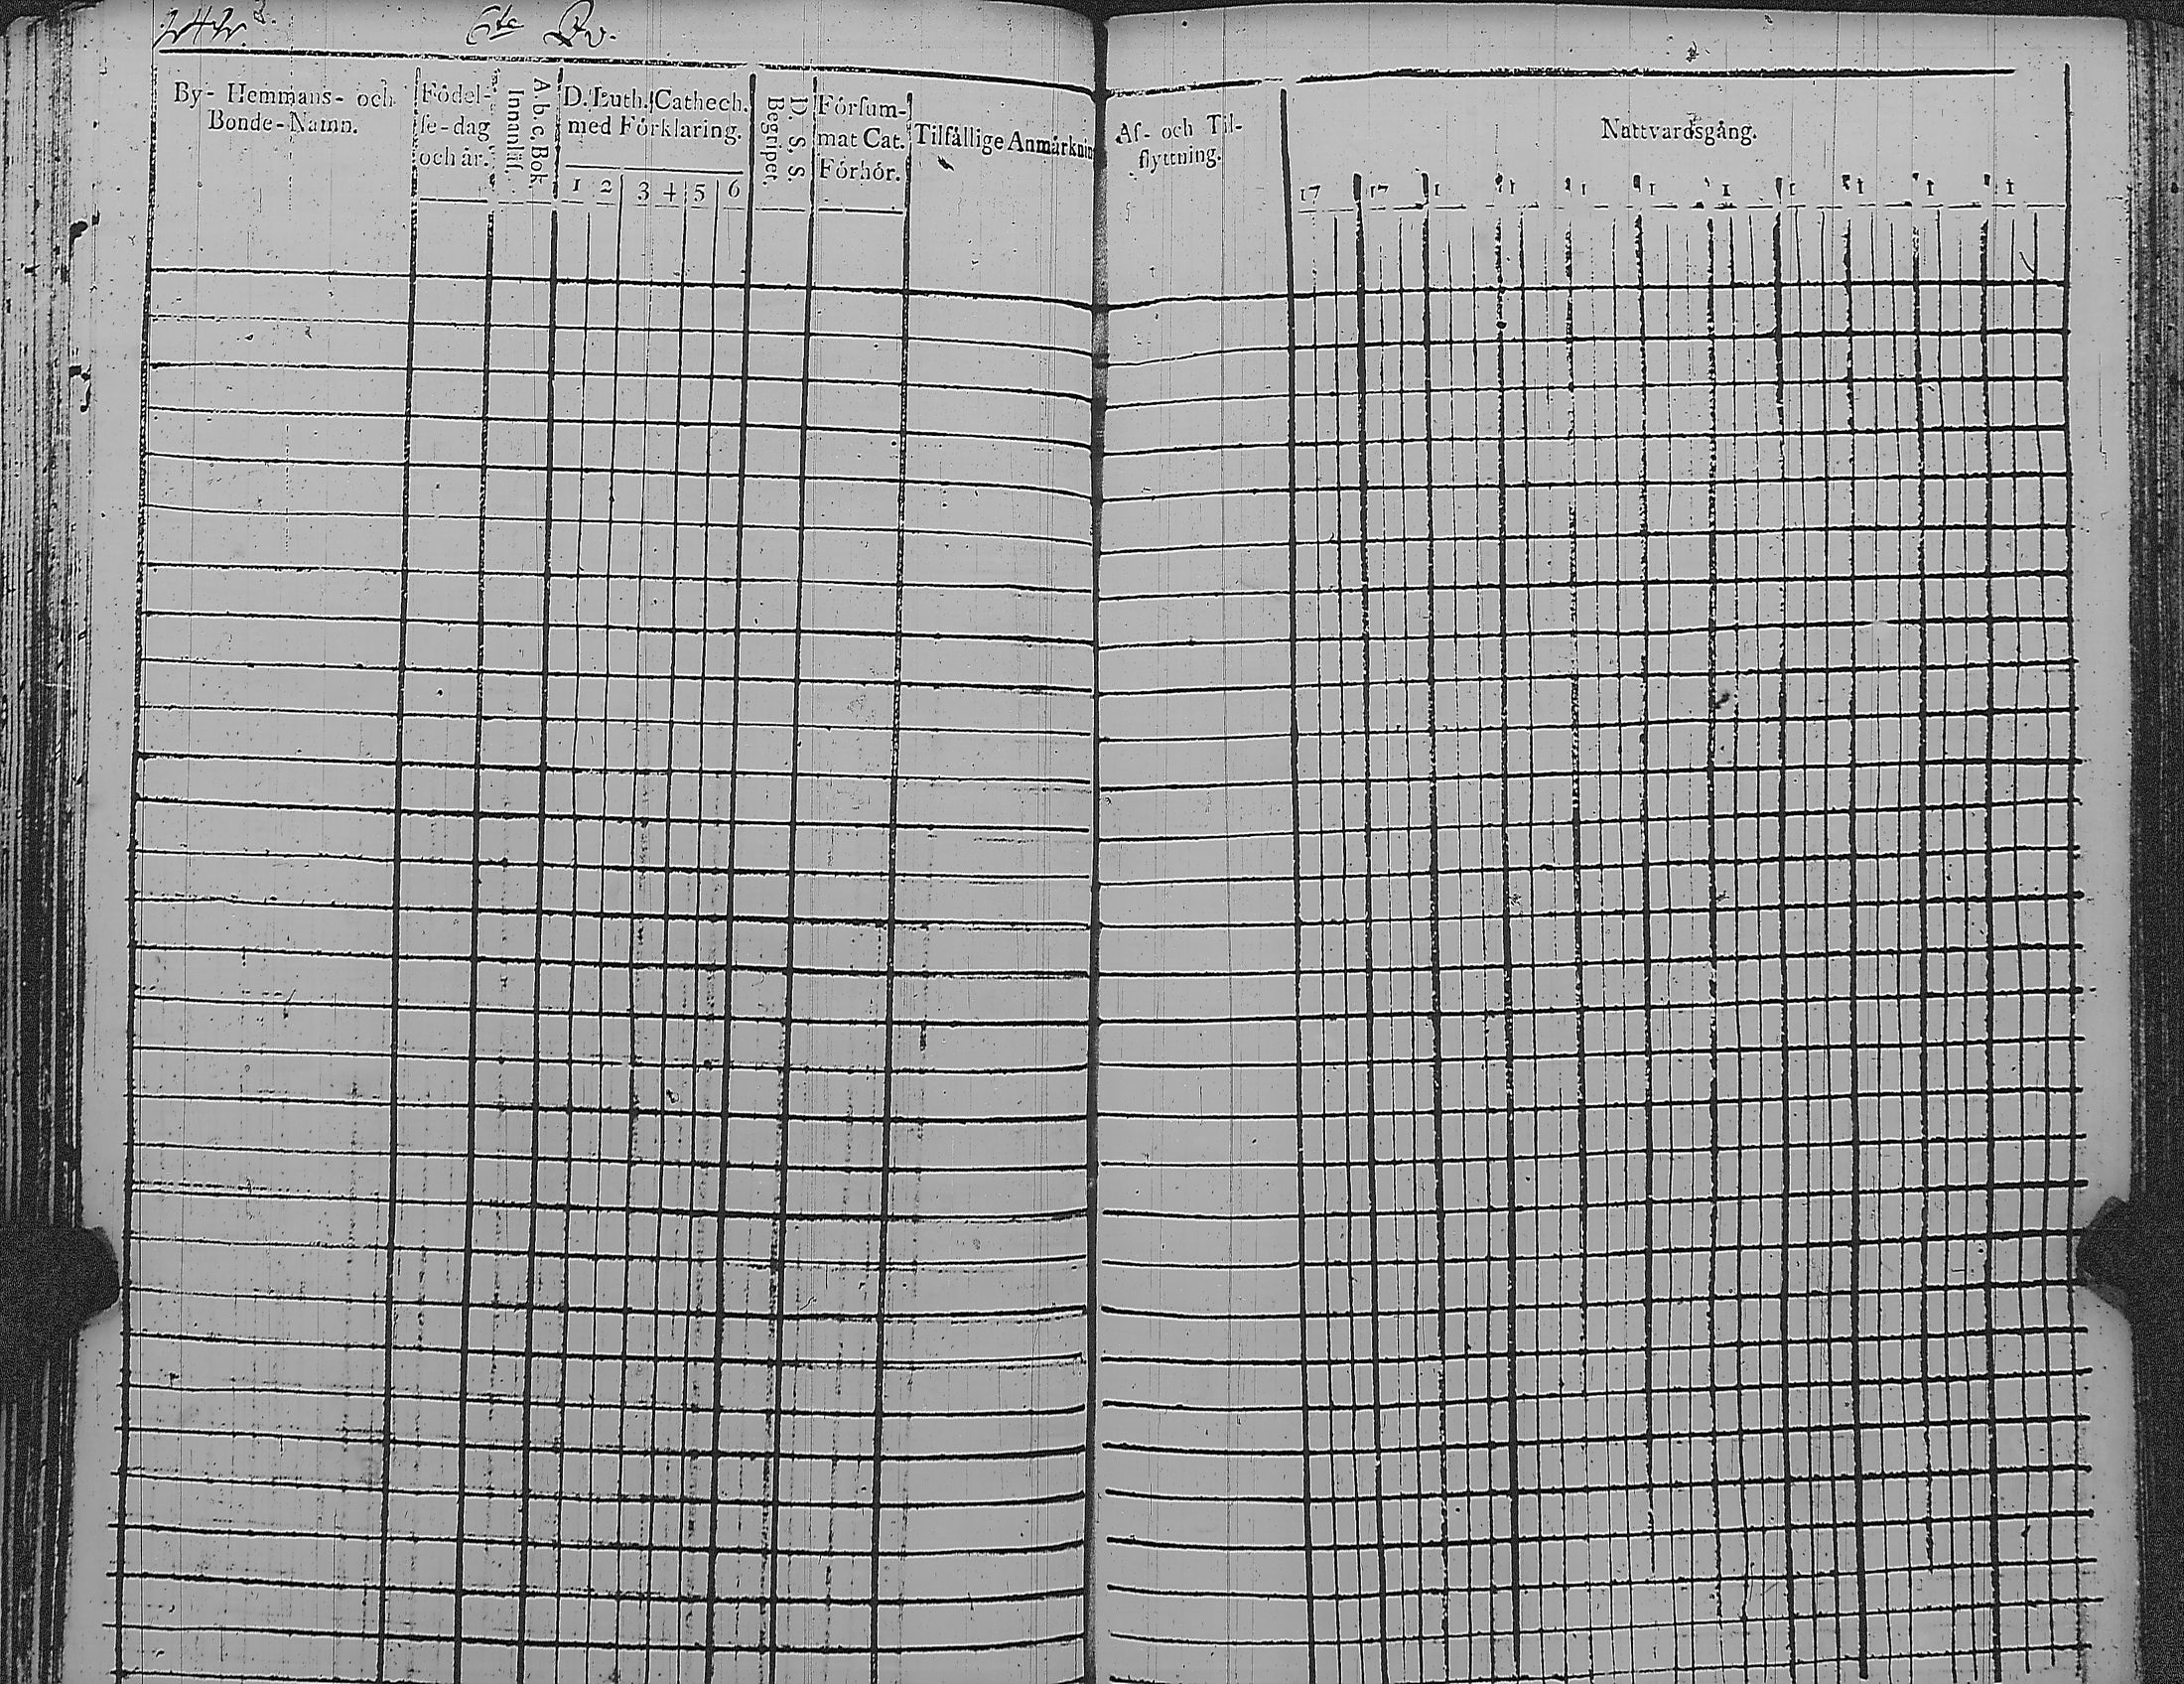 242.
6te Qv.
By- Hemmans- och
Bonde-Namn.
Födel-
se-dag
och år.
A. b. c. Bok.
Innanläs.
D. Luth. Cathech.
med Förklaring.
1 2 3 4 5 6
D. S. S.
Begripet.
Försum-
mat Cat.
Förhör.
Tilfällige Anmärknin
Af- och Til-
flyttning.
Nattvardsgång.
17 17 1 1 1 1 1 1 1 1 1